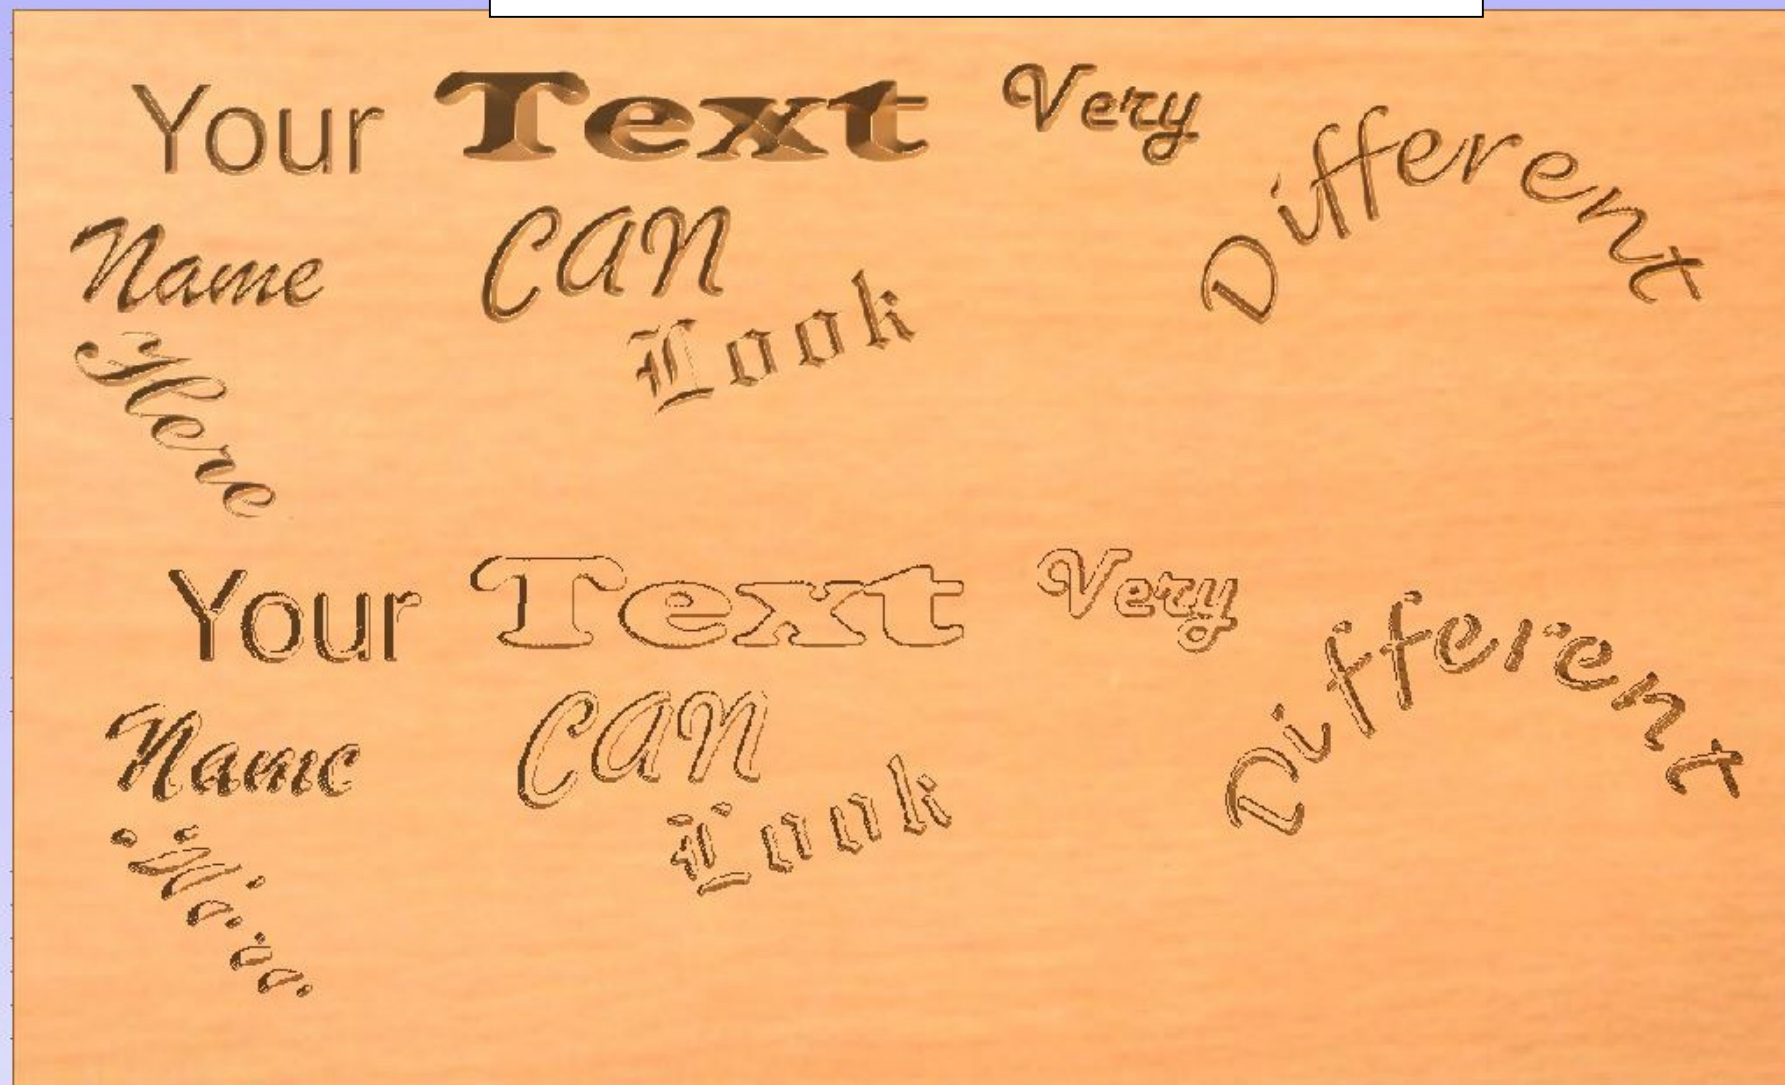 Your Text Very Different
Name CAN
Look
Here
Your Text Very Different
Name CAN
Look